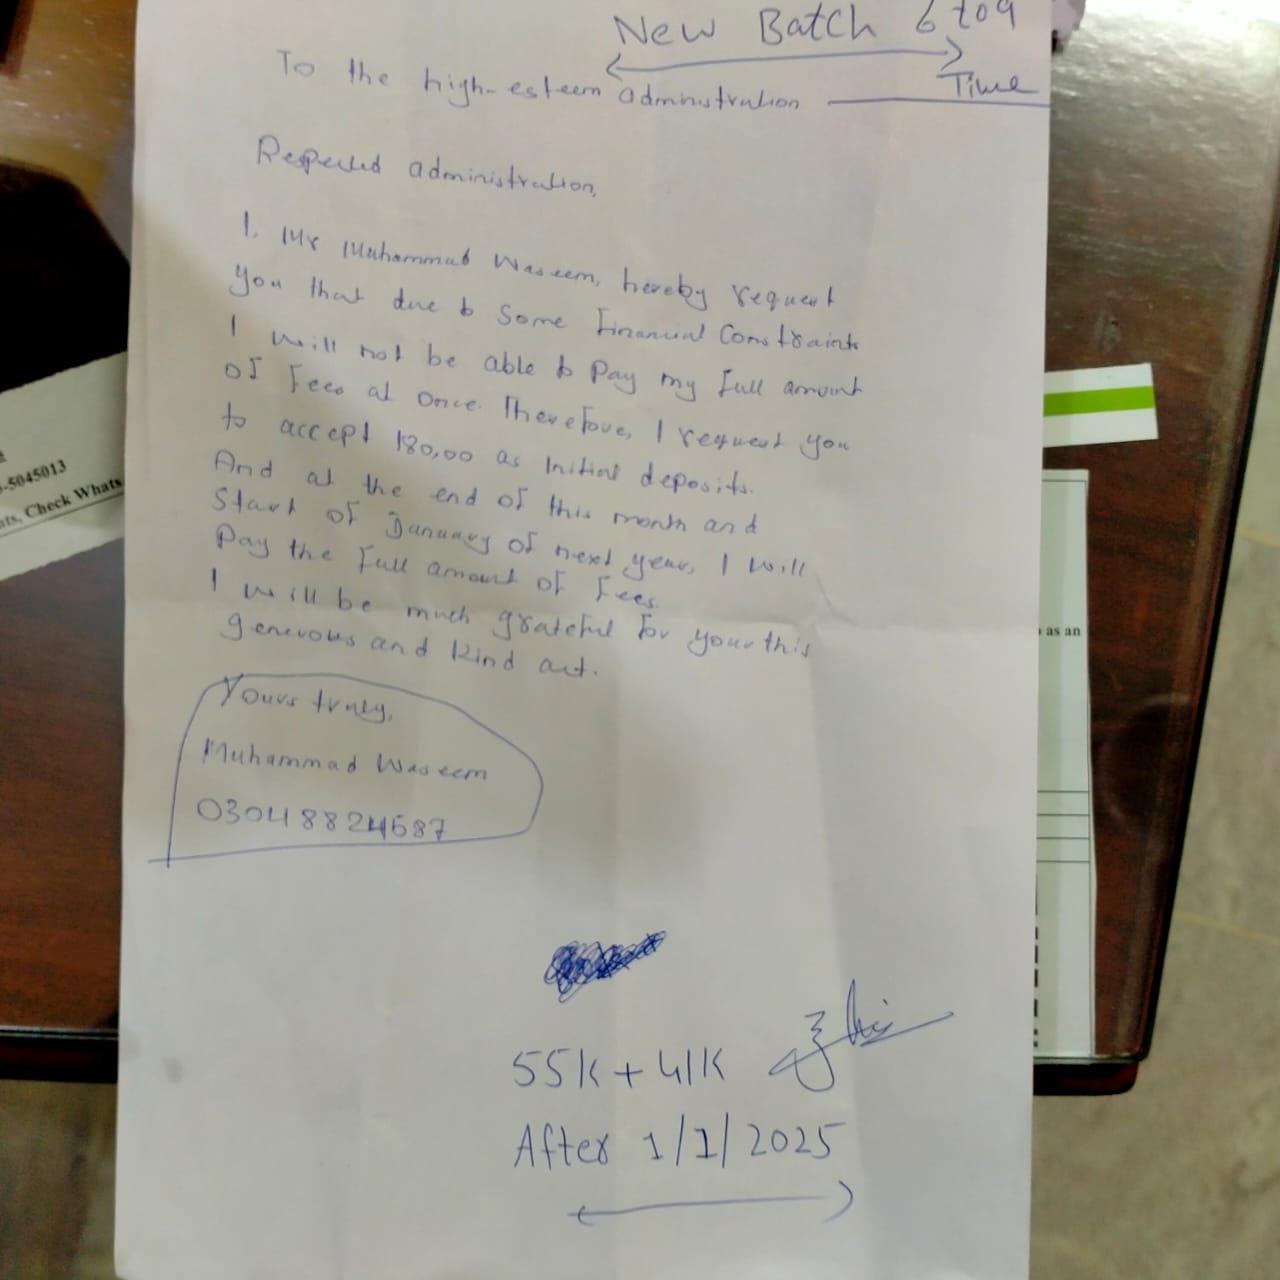 New Batch 6 to 9
Time
To the high-esteem administration
Respected administration,
I, Mr Muhammad Waseem, hereby request
you that due to some financial constraints
I will not be able to pay my full amount
of fees at once. Therefore, I request you
to accept 180,00 as initial deposits.
And at the end of this month and
start of January of next year, I will
pay the full amount of fees.
I will be much grateful for your this
generous and kind act.
Yours truly,
Muhammad Waseem
03048824687
55K + 41K
After 1/1/2025
-5045013
nts, Check Whats
as an